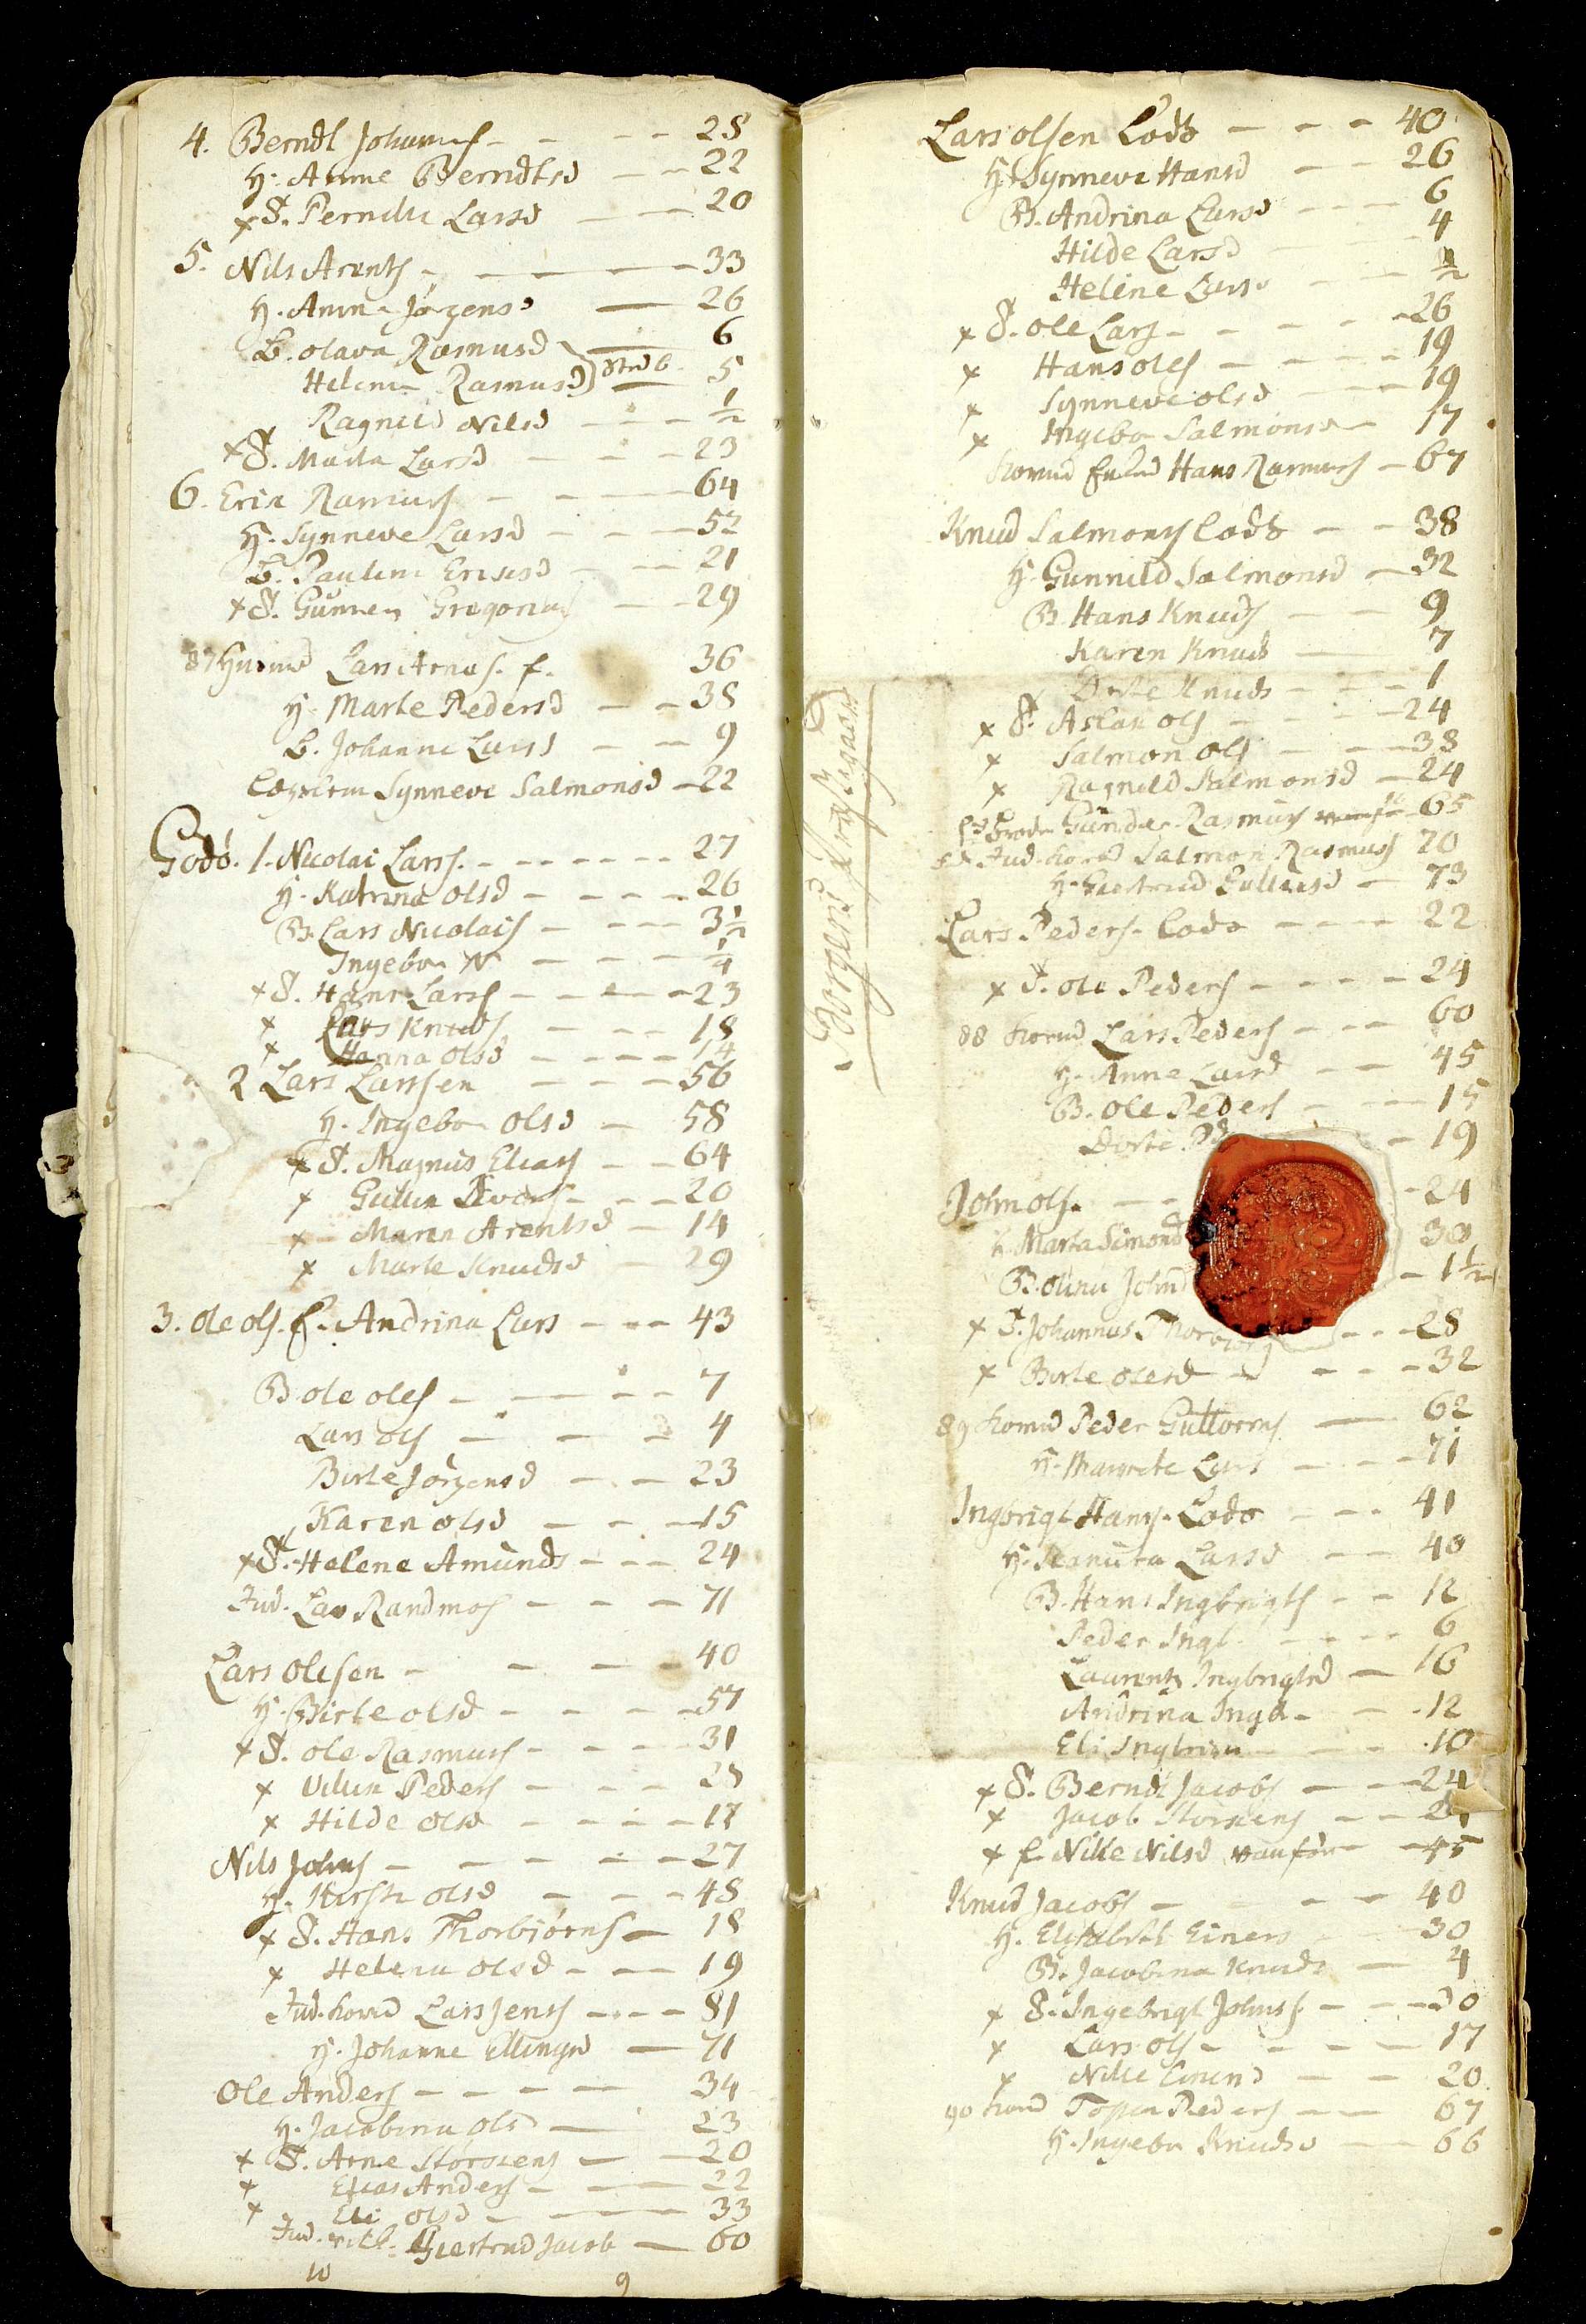 4. Berndt Johannes - - - 28
H. Anne Berndtsd - - 22
x S. Pernille Larsd - - 20
5. Nils Arents - - - - 33
H. Anne Jørgensd - 26
B. Olava Rasmusd - 6
Helene Rasmusd Stedb. - 5
Ragnild Nilsd - - - 1/2
x S. Marta Larsd - - - 23
6. Erik Rasmus - - - 64
H. Synneve Larsd - - - 52
B. Pauline Ericsd - - - 21
x S. Gunner Gregorius - - 29
87 Huusmd Lars Arnes. f. 36
H. Marte Pedersd - - 38
B. Johanne Larsd - - 9
Synneve Salmonsd - 22
Godø. 1. Nicolai Larss. - - - - - - 27
H. Katrine Olsd - - - - 26
B. Lars Nicolais - - - - 3 1/2
Ingebor N - - - - 1/4
x S. Hans Larss - - - - 23
x Lars Knuds - - - 18
x Hanna Olsd - - - - 14
2 Lars Larssen - - - 56
H. Ingebor Olsd - 58
x S. Magnus Elias - - 64
x - - - 20
x Maren Arentsd - 14
x Marte Knudsd - 29
3. Ole Ols. E. Andrina Lars - - - 43
B. Ole Oles - - - - - 7
Lars Ols - - - - 4
Birte Jørgensd - - - 23
Karen Olsd - - - 15
x S. Helene Amunds - - - 24
Ind. Lars Randmos - - - 71
Lars Olesen - - - - 40
H. Birte Olsd - - - - 57
x S. Ole Rasmus - - - - 31
x Peders - - - 28
x Hilde Olsd - - - - 17
Nils Johns - - - - - - 27
H. Olsd - - - 48
x S. Hans Thorbiörns - 18
x Helena Olsd - - - 19
Ind. Lars Jens - - - 81
H. Johanne Ellingsd - 71
Ole Anders - - - - - 34
H. Jacobina Ols - 23
x S. Arne Størkers - - 20
x Elias Anders - - - 22
x Eli Olsd - - - 33
Ind. Giertrud Jacob - 60
10 9
Lars Olsen Lods - - - 40
H. Synneve Hansd - - 26
B. Andrina Larsd - - - - 6
Hilde Larsd - 4
Heline Larsd - - 1/2
x S. Ole Lars - - - - - 26
x Hans Oles - - - - 19
x Synneve Olsd - - 19
x Ingebor Salmonsd - 17
Hans Rasmus - 67
Knud Salmons Lods - - 38
H. Gunnild Salmonsd - 32
B. Hans Knuds - - 9
Karen Knuds - 7
Dorte Knuds - - - 1
x S. Aslak Ols - - - - 24
x Salmon Ols - - - 38
x Ragnild Salmonsd - 24
Gunder Rasmus - 65
Ind. Salmon Rasmuss 70
H. Giertrud - 73
Lars Peders. Lods - - - - 22
x S. Ole Peders - - - - 24
88 Lars Peders - - - 60
H. Anne Larsd - - 45
B. Ole Peders - - - 15
Dorte - 19
John Ols. - - - 24
H. Marta Simons 30
B. Olina Johnd - 1 1/2
x S. Johannes Thorbiörns - - - 28
x Birte Olesd - - - - 32
89 Peder Guttorms - 62
H. Marrete Lars - - - 71
Ingbrigt Hans. Lods - - - 41
H. Larsd - - 40
B. Hans Ingbrigts - - 12
Peder Ingb. - - - - 6
Laurents Ingbrigtsd - 16
Andrina Ingb. - - - 12
Eli Ingbrigtd - - - 10
x S. Berndt Jacobs - - - 24
x Jacob Størkers - - 24
x Nille Nilsd vanfør - 45
Knud Jacobs - - - - 40
H. Elisabeth Einers - 30
B. Jacobina Knuds - 4
x S. Ingebrigt Johns. - - - 30
x Lars Ols - - - - 17
x Nille - - 20
90 Peders - - 67
H. Ingebor Knudsd - - 66